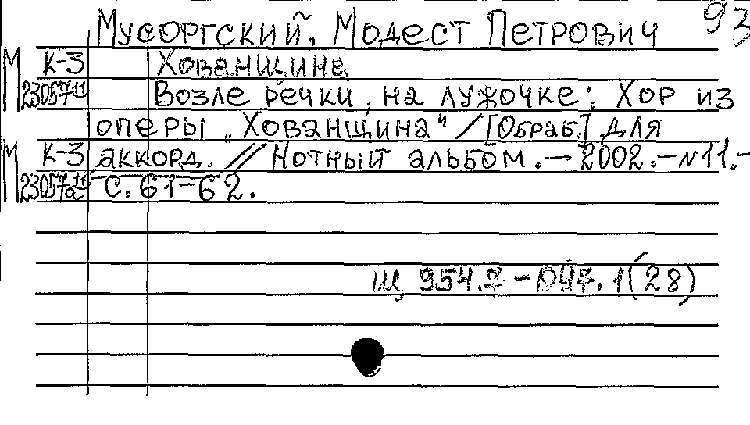 93
Мусоргский, Модест Петрович
М К-3 Хованщина
Возле речки, на лужочке: Хор из
оперы „Хованщина" / [Обраб.] для
М К-3 аккорд. // Нотный альбом. - 2002. - N11. -
С. 61-62.
Щ 954.2-